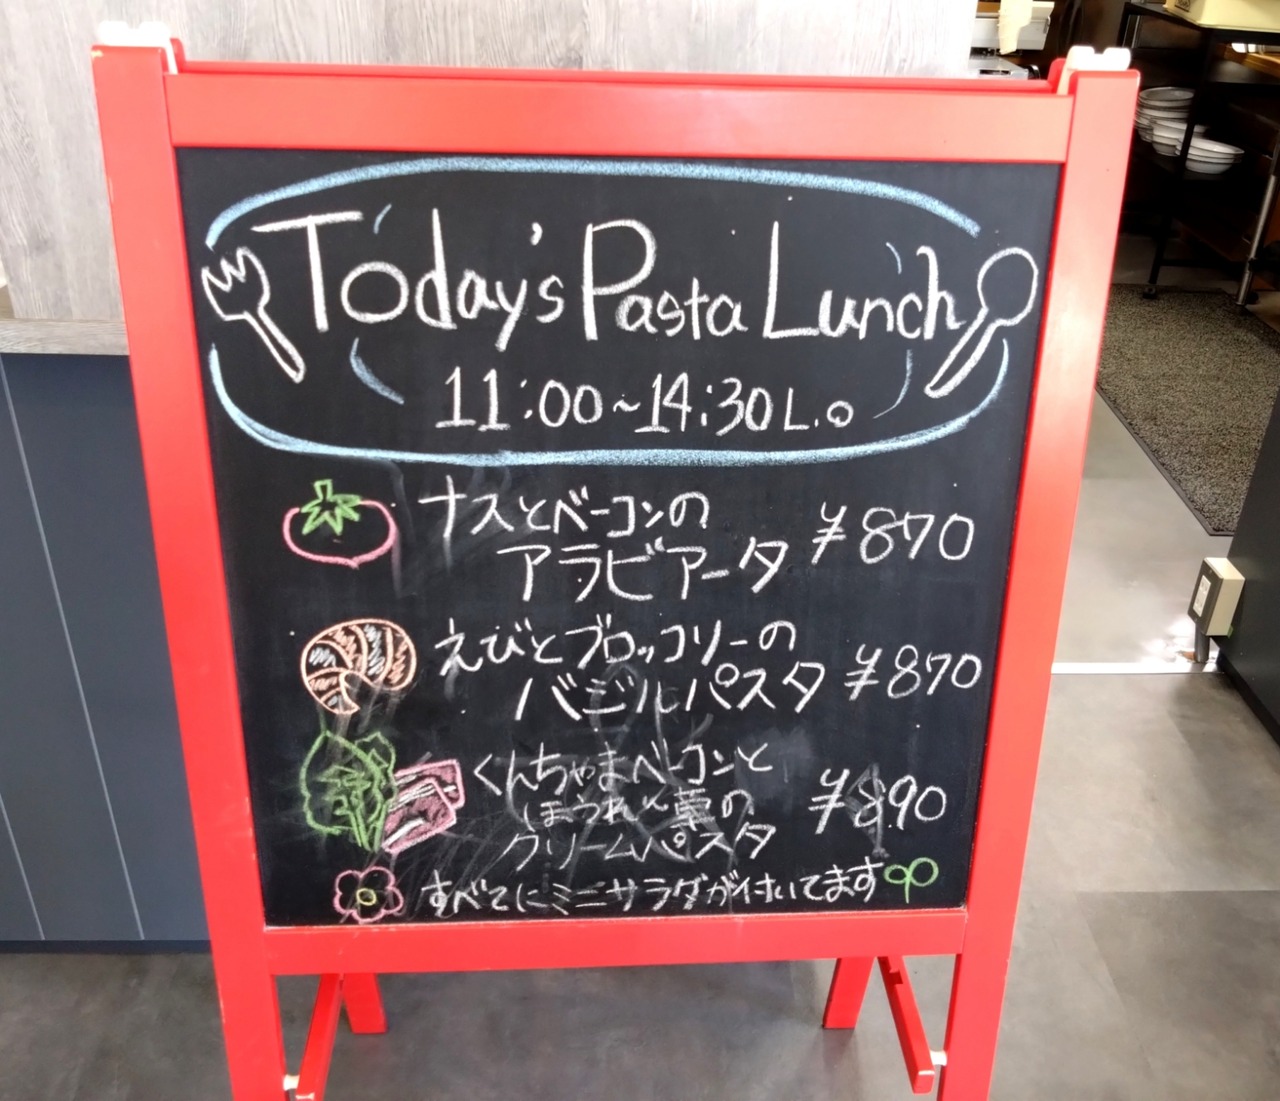 Today's Pasta Lunch
11:00~14:30 L.O
ナスとベーコンの
アラビアータ ¥870
えびとブロッコリーの
バジルパスタ ¥870
くんちゃまベーコンと
ほうれん草の ¥890
クリームパスタ
すべてにミニサラダが付いてます